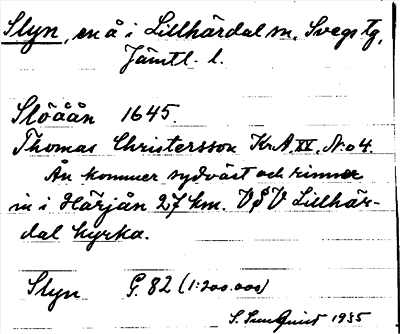 Slyn, en å i Lillhärdal sn, Svegs tg,
Jämtl. l.
Slöåån 1645.
Thomas Christersson Kr.A. XV. N:o 4.
Ån kommer sydväst och rinner
in i Härjån 27 km. VSV Lillhär-
dal kyrka.
Slyn G. 82 (1:200.000)
S. Sundquist 1935